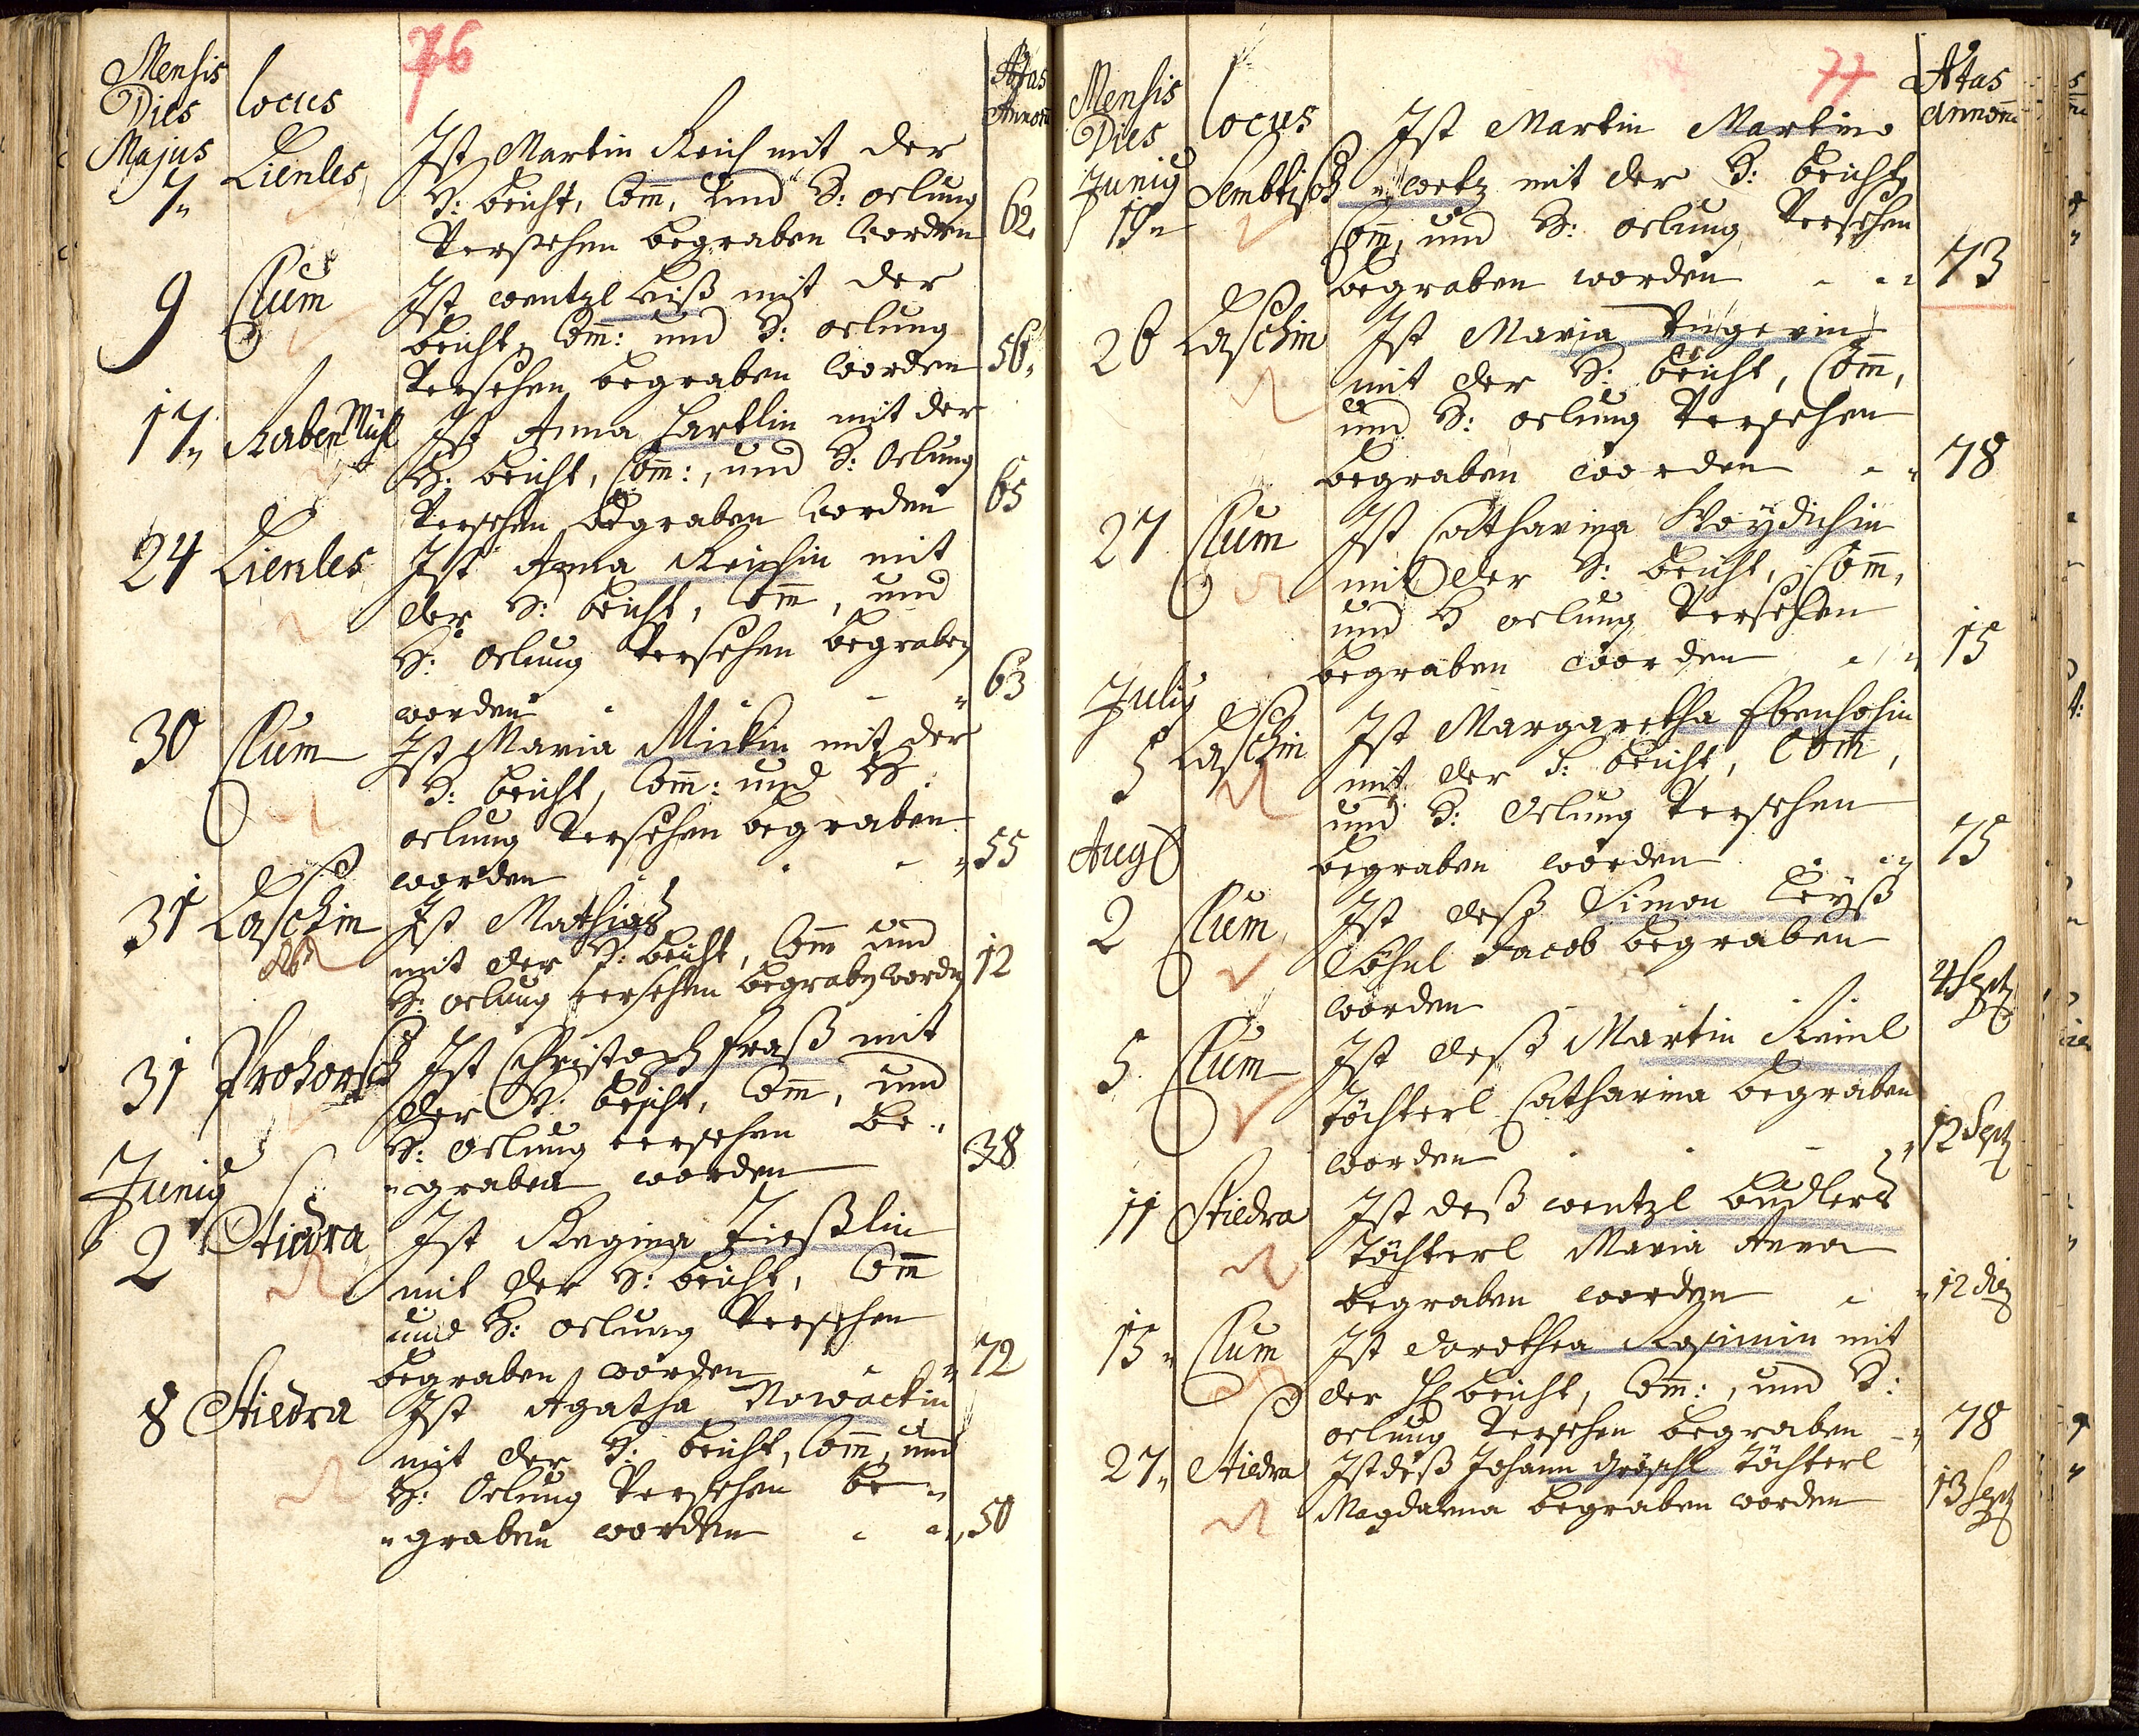 76
Mensis
Dies
locus
Ætas
Annorũ
Majus
7„ Lienles Ist Martin Reich mit der
H: beicht, Com̃, und H: oelung
Versehen begraben worden 62„
9 Clum Ist wentzl Leiß mit der
beicht, Com̃: und H: oelung
Versehen begraben worden 56„
17„ RabenMühl Ist Anna Hartlin mit der
H: beicht, Com̃:, und H: Oelung
Versehen begraben worden 65
24 Lienles Ist Anna Reichin mit
der H: beicht, Com̃, und
H: Oelung Versehen begraben
worden 63
30 Clum Ist Maria Mickin mit der
H: beicht, Com̃: und H:
oelung Versehen begraben
worden 55
31 Laschin Ist Mathias
mit der H: beicht, Com̃ und
H: oelung versehen begraben worden 12
31 Prohorsch Ist Christoph Fraß mit
der H: beicht, Com̃, und
H: Oelung versehen be„
„graben worden 38
Juniy
2 Stiedra Ist Regina Zießlin
mit der H: beicht, Com̃
und H: oelung Versehen
begraben worden 72
8 Stiedra Ist Agatha Nowackin
mit der H: beicht, Com̃, und
H: Oelung Versehen be„
„graben worden 50
77
Mensis
Dies
locus
Ætas
Annorũ
Juniy
Ist Martin Martino
17„ Sembtisch „wetz mit der H: beicht,
Com̃, und H: oelung Versehen
begraben worden 73
26 Laschin Ist Maria Ungerin
mit der H: beicht, Com̃,
und H: oelung Versehen
begraben worden 78
27 Clum Ist Catharina Woÿdichin
mit der H: beicht, Com̃,
und H oelung Versehen
begraben worden 15
Juliy
5 Laschin Ist Margaretha Ebenhohin
mit der H: beicht, Com̃,
und H: Oelung Versehen
begraben worden 75
Aug
2 Clum Ist deß Simon Leyß
Söhnl Jacob begraben
worden 4 Sept
5 Clum Ist deß Martin Reinl
Töchterl Catharina begraben
worden 12 Sept
11 Stiedra Ist deß wentzl Budlers
Töchterl Maria Anna
begraben worden 12 die
15„ Clum Ist Dorothea Rosinin mit
der H beicht, Com̃:, und H:
oelung Versehen begraben 78
27„ Stiedra Ist deß Johann Gröschl Töchterl
Magdalena begraben worden 13 Sept